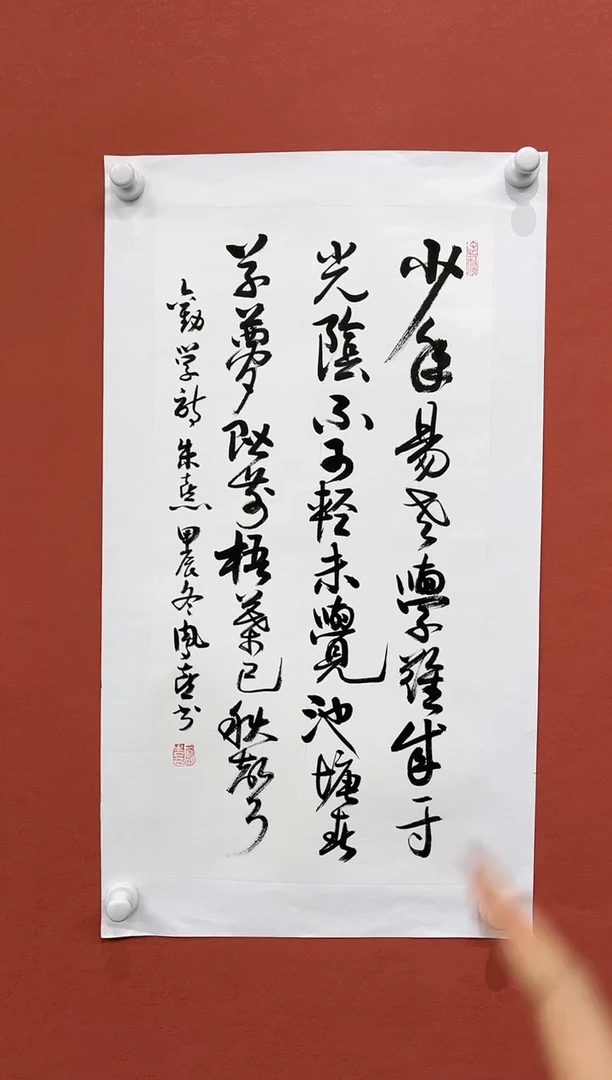 少年易老學難成一寸
光陰不可輕未覺池塘春
草夢階前梧葉已秋聲
勸學詩朱熹甲辰冬